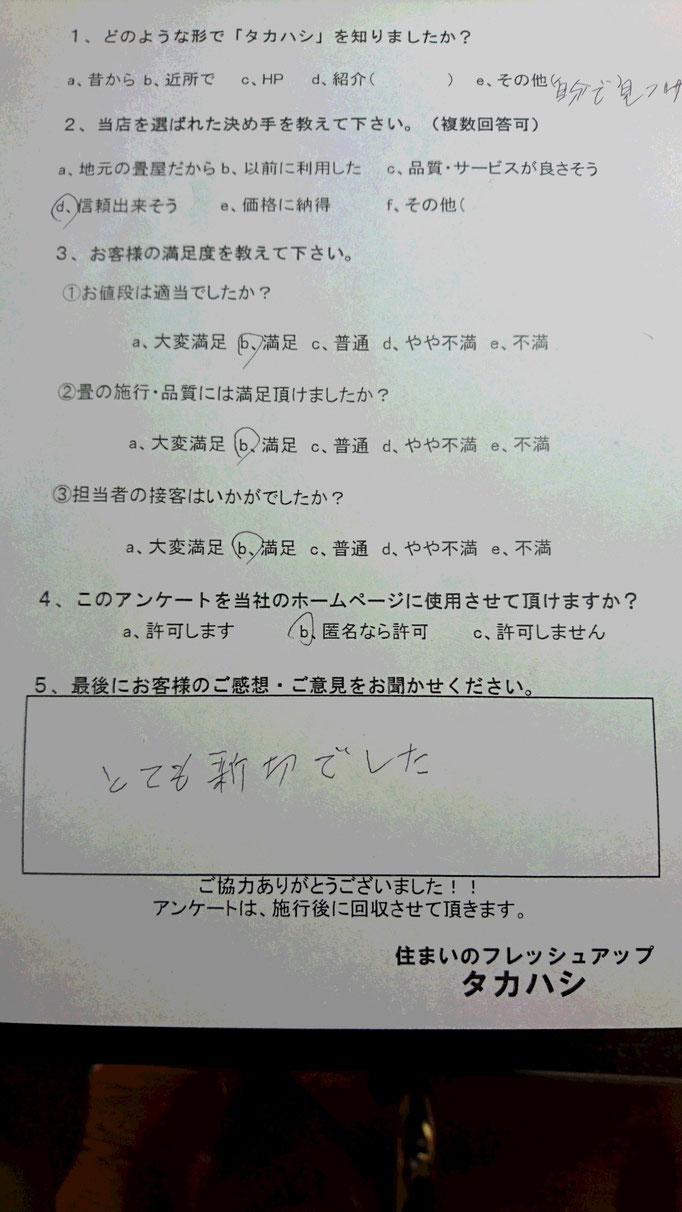 1、どのような形で「タカハシ」を知りましたか？
a、昔から b、近所で c、HP d、紹介( ) e、その他(自分で見つけ
2、当店を選ばれた決め手を教えて下さい。（複数回答可）
a、地元の畳屋だから b、以前に利用した c、品質・サービスが良さそう
d、信頼出来そう e、価格に納得 f、その他(
3、お客様の満足度を教えて下さい。
①お値段は適当でしたか？
a、大変満足 b、満足 c、普通 d、やや不満 e、不満
②畳の施行・品質には満足頂けましたか？
a、大変満足 b、満足 c、普通 d、やや不満 e、不満
③担当者の接客はいかがでしたか？
a、大変満足 b、満足 c、普通 d、やや不満 e、不満
4、このアンケートを当社のホームページに使用させて頂けますか？
a、許可します b、匿名なら許可 c、許可しません
5、最後にお客様のご感想・ご意見をお聞かせください。
とても新切でした
ご協力ありがとうございました！！
アンケートは、施行後に回収させて頂きます。
住まいのフレッシュアップ
タカハシ